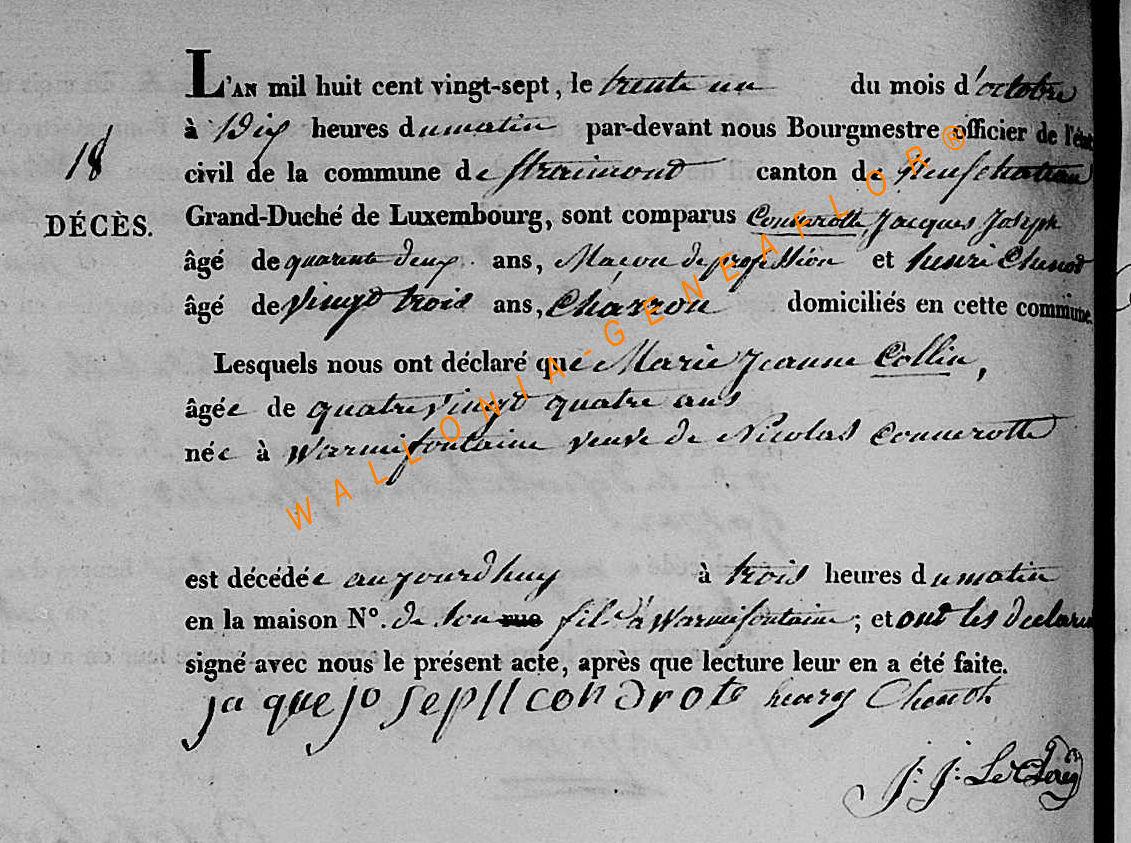 L'AN mil huit cent vingt-sept, le trente un du mois d'octobre
18 à Dix heures du matin par-devant nous Bourgmestre officier de l'état
civil de la commune de Straimont canton de Neufchateau
DÉCÈS. Grand-Duché de Luxembourg, sont comparus Conrerotte, Jacques Joseph
âgé de quarente deux ans, Maçon de profession et henri Chenot
âgé de vingt trois ans, Charron domiciliés en cette commune.
Lesquels nous ont déclaré que Marie Jeanne Collin,
âgée de quatre vingt quatre ans
née à Warmifontaine veuve de Nicolas Connerotte
est décédée aujourdhuy à trois heures du matin
en la maison N°. de son rue fils à Warmifontaine ; et ont les declarans
signé avec nous le présent acte, après que lecture leur en a été faite.
jaque joseph conrote henry Chenoth
J: J:
WALLONIA-GENEAFLOR®